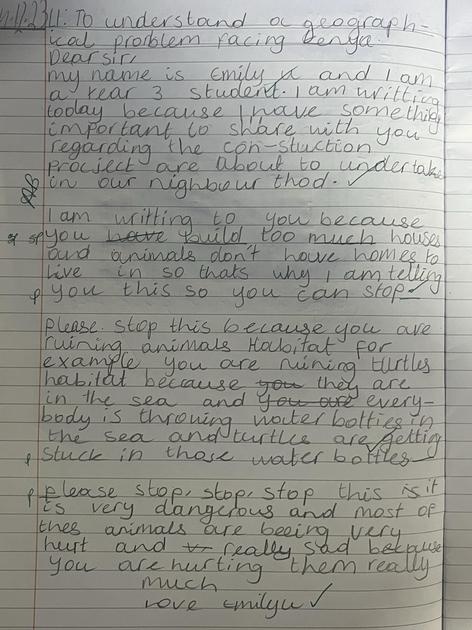 LI: To understand a geograph-
ical problem facing Kenya.
Dear sir,
my name is Emily x and I am
a Year 3 student. I am writting
today because I have something
important to share with you
regarding the con-stuction
procject are about to undertake
in our nighbour thod.
I am writting to you because
you have build too much houses
and animals don't have homes to
live in so thats why I am telling
you this so you can stop
please stop this because you are
ruining animals Habitat for
example you are ruining turtles
habitat because you they are
in the sea and you are every-
body is throwing water bottles in
the sea and turtles are getting
stuck in those water bottles
please stop, stop, stop this is it
is very dangerous and most of
thes animals are beeing very
hurt and really sad because
you are hurting them really
much
Love Emily